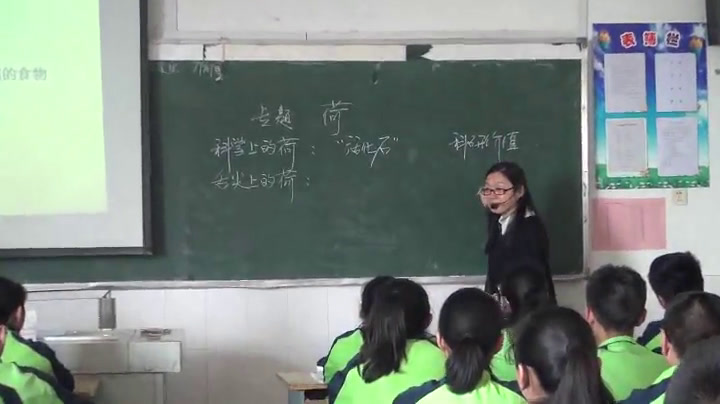 的食物
专题 荷
科学上的荷："活化石" 科研价值
舌尖上的荷：
表扬栏